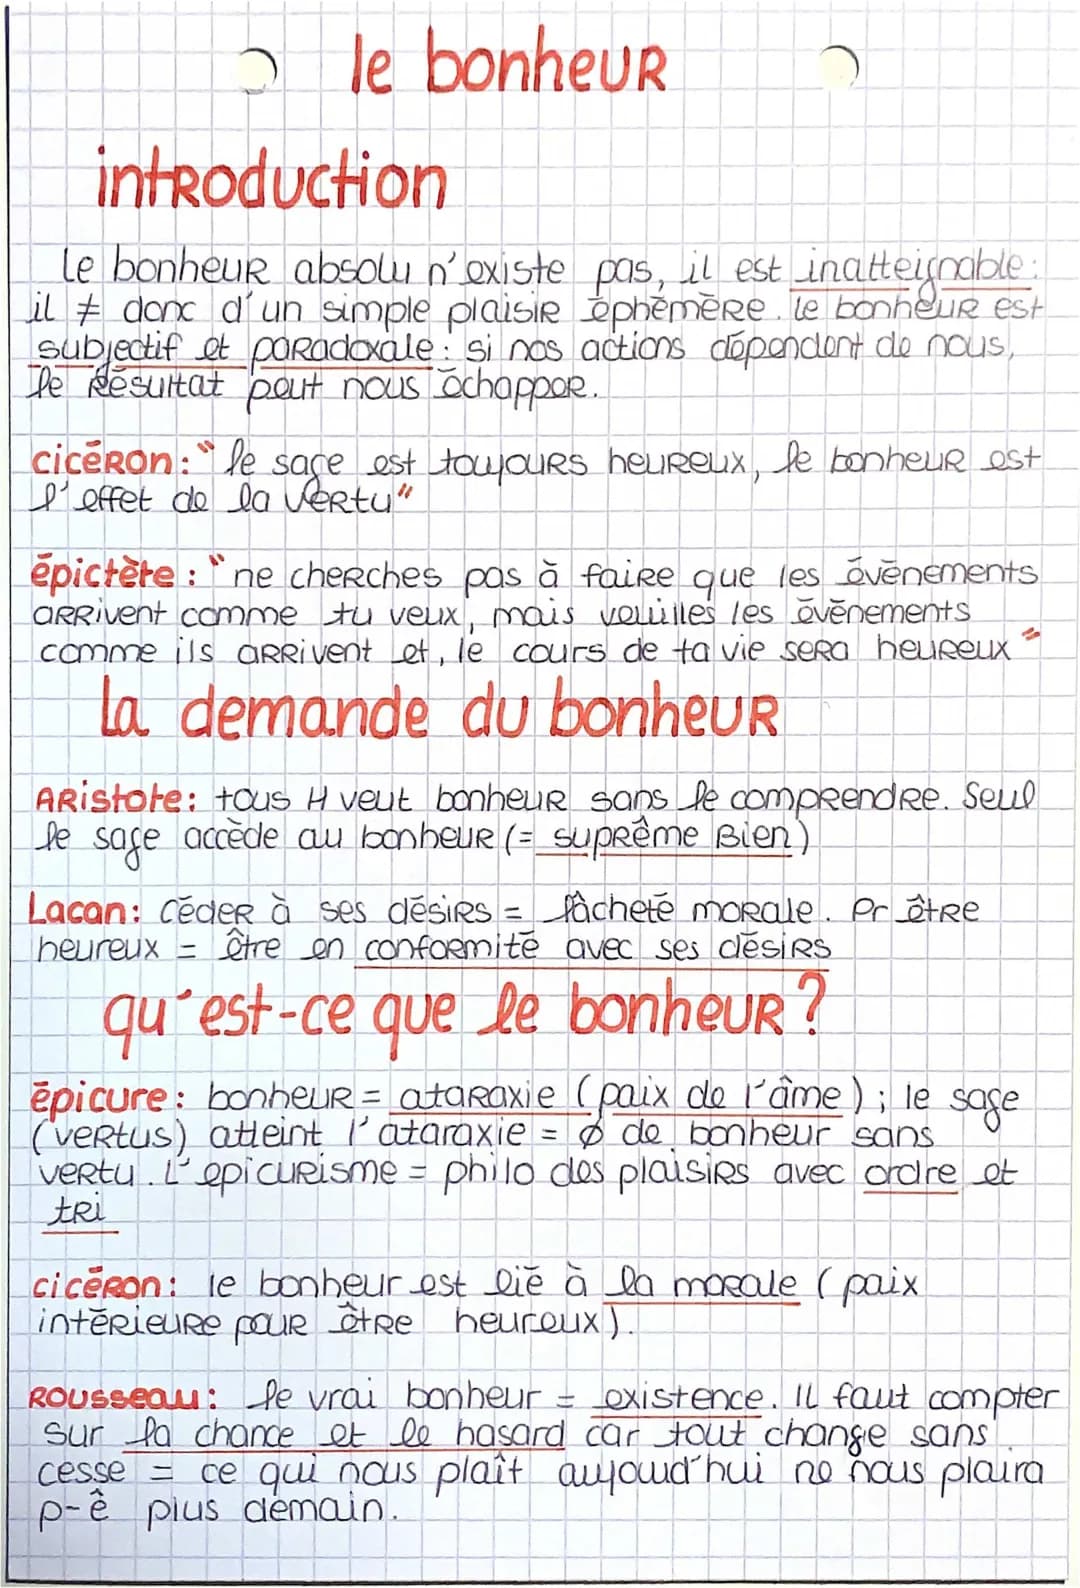 le bonheur
introduction
Le bonheur absolu n'existe pas, il est inatteignable :
il ≠ donc d'un simple plaisir éphémère. Le bonheur est
subjectif et paradoxale : si nos actions dépendent de nous,
le résultat peut nous échapper.
cicéron : "le sage est toujours heureux, le bonheur est
l'effet de la vertu"
épictète : "ne cherches pas à faire que les évènements
arrivent comme tu veux, mais veuilles les évènements
comme ils arrivent et, le cours de ta vie sera heureux"
La demande du bonheur
Aristote : tous H veut bonheur sans le comprendre. Seul
le sage accède au bonheur (= suprême Bien)
Lacan : Céder à ses désirs = lâcheté morale. Pr être
heureux = être en conformité avec ses désirs
qu'est-ce que le bonheur ?
épicure : bonheur = ataraxie (paix de l'âme) ; le sage
(vertus) atteint l'ataraxie = ø de bonheur sans
vertu. L'epicurisme = philo des plaisirs avec ordre et
tri
cicéron : le bonheur est lié à la morale (paix
intérieure pour être heureux).
Rousseau : le vrai bonheur = existence. Il faut compter
sur la chance et le hasard car tout change sans
cesse = ce qui nous plaît aujourd'hui ne nous plaira
p-ê plus demain.